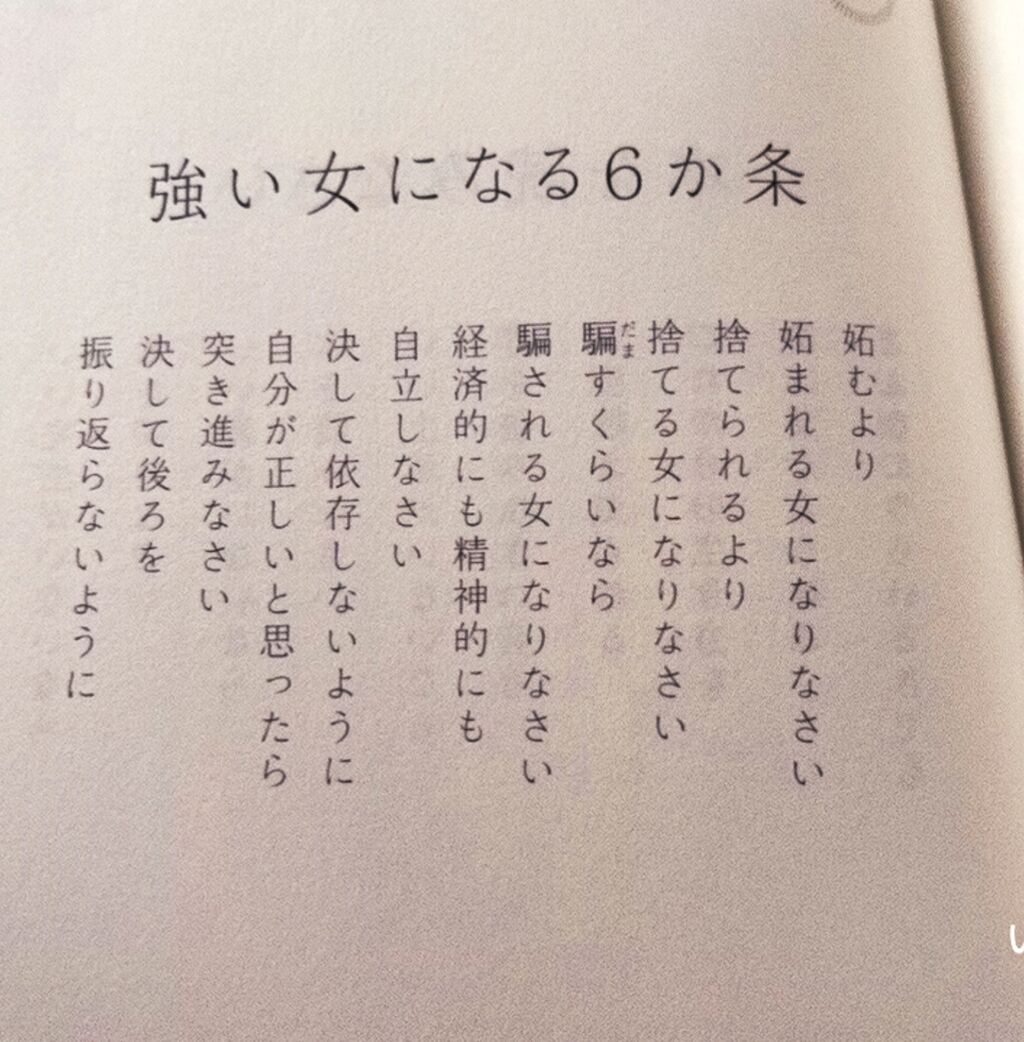 強い女になる6か条
妬むより
妬まれる女になりなさい
捨てられるより
捨てる女になりなさい
騙すくらいなら
だま
騙される女になりなさい
経済的にも精神的にも
自立しなさい
決して依存しないように
自分が正しいと思ったら
突き進みなさい
決して後ろを
振り返らないように